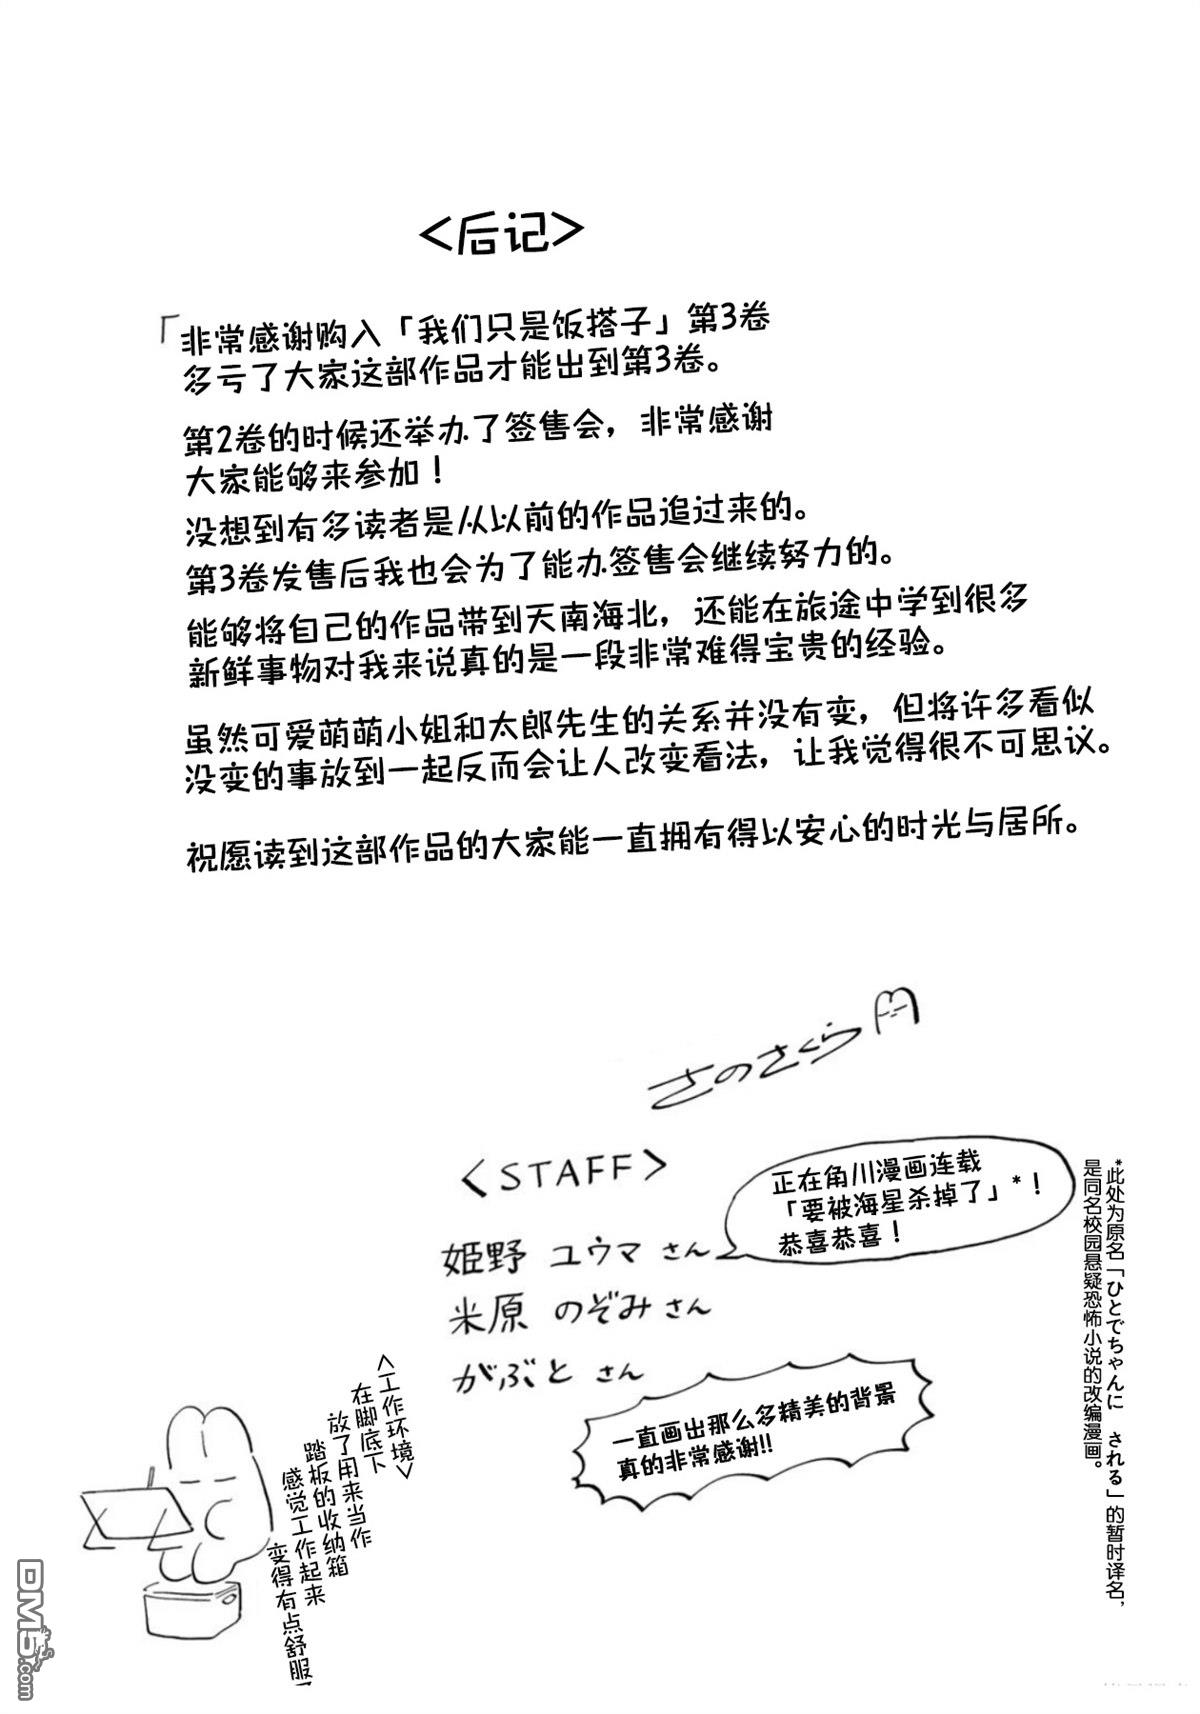 <后记>
「非常感谢购入「我们只是饭搭子」第3卷
多亏了大家这部作品才能出到第3卷。
第2卷的时候还举办了签售会，非常感谢
大家能够来参加！
没想到有多读者是从以前的作品追过来的。
第3卷发售后我也会为了能办签售会继续努力的。
能够将自己的作品带到天南海北，还能在旅途中学到很多
新鲜事物对我来说真的是一段非常难得宝贵的经验。
虽然可爱萌萌小姐和太郎先生的关系并没有变，但将许多看似
没变的事放到一起反而会让人改变看法，让我觉得很不可思议。
祝愿读到这部作品的大家能一直拥有得以安心的时光与居所。
さのさくら
<STAFF>
姫野 ユウマ さん
正在角川漫画连载
「要被海星杀掉了」*！
恭喜恭喜！
米原 のぞみ さん
がぶと さん
一直画出那么多精美的背景
真的非常感谢!!
*此处为原名「ひとでちゃんに される」的暂时译名，
是同名校园悬疑恐怖小说的改编漫画。
<工作环境>
在脚底下
放了用来当作
踏板的收纳箱
感觉工作起来
变得有点舒服了
DM5.com